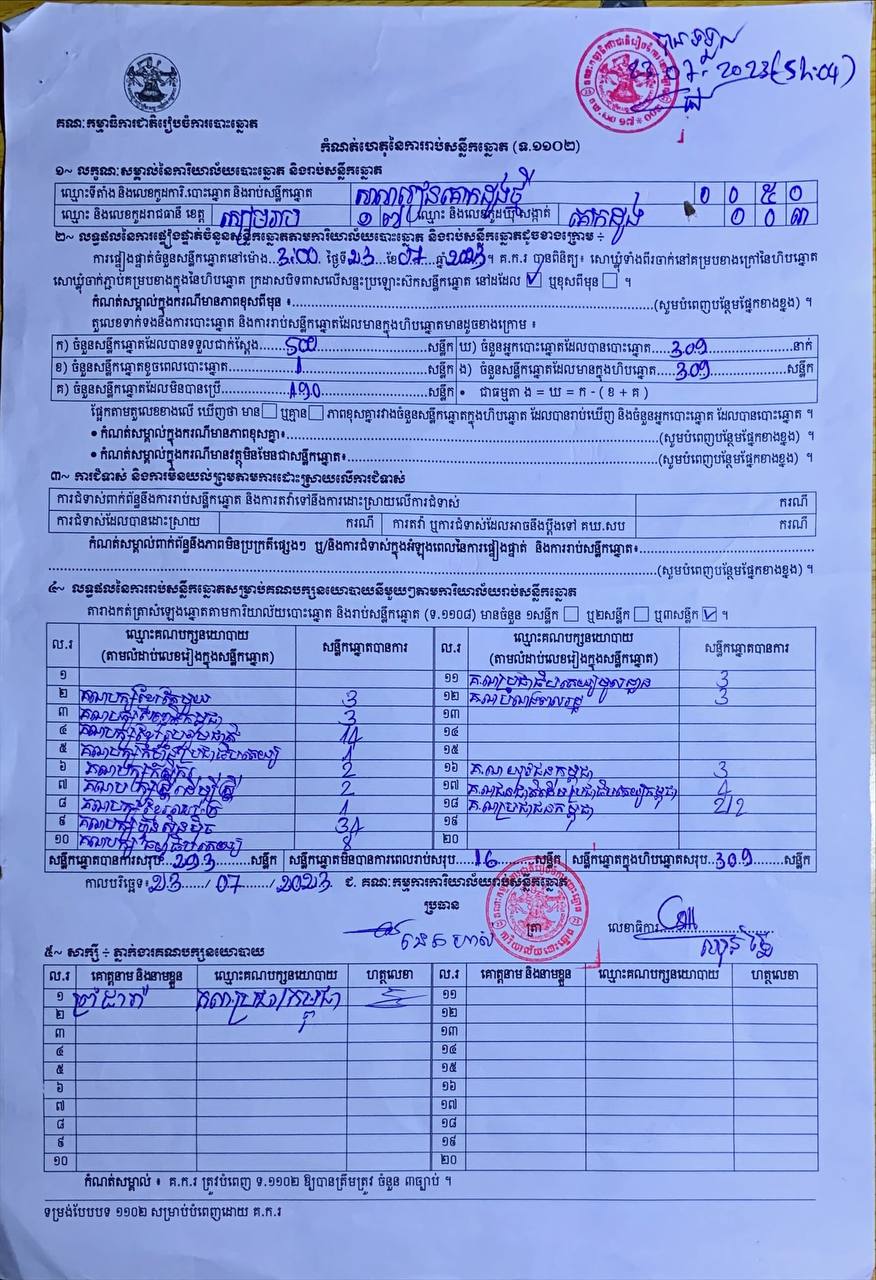 បានទទួល
23.07.2023(Sh:04)
គណៈកម្មាធិការជាតិរៀបចំការបោះឆ្នោត
កំណត់ហេតុនៃការរាប់សន្លឹកឆ្នោត (ទ.១១០២)
១~ លក្ខណៈសម្គាល់នៃការិយាល័យបោះឆ្នោត និងរាប់សន្លឹកឆ្នោត
ឈ្មោះទីតាំង និងលេខកូដការិ.បោះឆ្នោត និងរាប់សន្លឹកឆ្នោត សាលារៀនគោកដូងថ្មី ០ ០ ៥ ០
ឈ្មោះ និងលេខកូដរាជធានី ខេត្ត សៀមរាប ១ ៧ ឈ្មោះ និងលេខកូដឃុំ សង្កាត់ គោកដូង ០ ០ ៣
២~ លទ្ធផលនៃការផ្ទៀងផ្ទាត់ចំនួនសន្លឹកឆ្នោតតាមការិយាល័យបោះឆ្នោត និងរាប់សន្លឹកឆ្នោតដូចខាងក្រោម ÷
ការផ្ទៀងផ្ទាត់ចំនួនសន្លឹកឆ្នោតនៅម៉ោង..3:00 ថ្ងៃទី23 ខែ07 ឆ្នាំ2023។ គ.ក.រ បានពិនិត្យ៖ សោឃ្មុំទាំងពីរចាក់នៅគម្របខាងក្រៅនៃហិបឆ្នោត
សោឃ្មុំចាក់ភ្ជាប់គម្របខាងក្នុងនៃហិបឆ្នោត ក្រដាសបិទពាសលើសន្ទះប្រឡោះស៊កសន្លឹកឆ្នោត នៅដដែល ☑ ឬខុសពីមុន ☐ ។
កំណត់សម្គាល់ក្នុងករណីមានភាពខុសពីមុន ៖..........(សូមបំពេញបន្ថែមផ្នែកខាងខ្នង) ។
តួលេខទាក់ទងនឹងការបោះឆ្នោត និងការរាប់សន្លឹកឆ្នោតដែលមានក្នុងហិបឆ្នោតមានដូចខាងក្រោម ៖
ក) ចំនួនសន្លឹកឆ្នោតដែលបានទទួលជាក់ស្តែង....500....សន្លឹក ឃ) ចំនួនអ្នកបោះឆ្នោតដែលបានបោះឆ្នោត....309....នាក់
ខ) ចំនួនសន្លឹកឆ្នោតខូចពេលបោះឆ្នោត....1....សន្លឹក ង) ចំនួនសន្លឹកឆ្នោតដែលមានក្នុងហិបឆ្នោត....309....សន្លឹក
គ) ចំនួនសន្លឹកឆ្នោតដែលមិនបានប្រើ....190....សន្លឹក • ជាធម្មតា ង = ឃ = ក - ( ខ + គ )
ផ្អែកតាមតួលេខខាងលើ ឃើញថា មាន ☐ ឬគ្មាន ☐ ភាពខុសគ្នារវាងចំនួនសន្លឹកឆ្នោតក្នុងហិបឆ្នោត ដែលបានរាប់ឃើញ និងចំនួនអ្នកបោះឆ្នោត ដែលបានបោះឆ្នោត ។
• កំណត់សម្គាល់ក្នុងករណីមានភាពខុសគ្នា៖..........(សូមបំពេញបន្ថែមផ្នែកខាងខ្នង) ។
• កំណត់សម្គាល់ក្នុងករណីមានវត្ថុមិនមែនជាសន្លឹកឆ្នោត៖..........(សូមបំពេញបន្ថែមផ្នែកខាងខ្នង) ។
៣~ ការជំទាស់ និងការមិនយល់ព្រមតាមការដោះស្រាយលើការជំទាស់
ការជំទាស់ពាក់ព័ន្ធនឹងការរាប់សន្លឹកឆ្នោត និងការតវ៉ាទៅនឹងការដោះស្រាយលើការជំទាស់ ករណី
ការជំទាស់ដែលបានដោះស្រាយ ករណី ការតវ៉ា ឬការជំទាស់ដែលអាចនឹងប្តឹងទៅ គឃ.សប ករណី
កំណត់សម្គាល់ពាក់ព័ន្ធនឹងភាពមិនប្រក្រតីផ្សេងៗ ឬ/និងការជំទាស់ក្នុងអំឡុងពេលនៃការផ្ទៀងផ្ទាត់ និងការរាប់សន្លឹកឆ្នោត៖..........
..........(សូមបំពេញបន្ថែមផ្នែកខាងខ្នង) ។
៤~ លទ្ធផលនៃការរាប់សន្លឹកឆ្នោតសម្រាប់គណបក្សនយោបាយនីមួយៗតាមការិយាល័យរាប់សន្លឹកឆ្នោត
តារាងកត់ត្រាសំឡេងឆ្នោតតាមការិយាល័យបោះឆ្នោត និងរាប់សន្លឹកឆ្នោត (ទ.១១០៨) មានចំនួន ១សន្លឹក ☐ ឬ២សន្លឹក ☐ ឬ៣សន្លឹក ☑ ។
ល.រ ឈ្មោះគណបក្សនយោបាយ (តាមលំដាប់លេខរៀងក្នុងសន្លឹកឆ្នោត) សន្លឹកឆ្នោតបានការ ល.រ ឈ្មោះគណបក្សនយោបាយ (តាមលំដាប់លេខរៀងក្នុងសន្លឹកឆ្នោត) សន្លឹកឆ្នោតបានការ
១ ១១ គ.ណប្រជាធិបតេយ្យមូលដ្ឋាន 3
២ គណបក្សខ្មែរតែមួយ 3 ១២ គ.ណ បំណងពលរដ្ឋ 3
៣ 3 ១៣
៤ គណបក្សខ្មែររួបរួមជាតិ 14 ១៤
៥ គណបក្សកម្លាំងប្រជាធិបតេយ្យ 1 ១៥
៦ គណបក្សកសិករ 2 ១៦ គ.ណ យុវជនកម្ពុជា 3
៧ គណបក្សស្ត្រីដើម្បីស្ត្រី 2 ១៧ គ.ណជនជាតិដើមប្រជាធិបតេយ្យកម្ពុជា 4
៨ 1 ១៨ គ.ណប្រជាជនកម្ពុជា 212
៩ គណបក្សហ៊្វុនស៊ិនប៉ិច 34 ១៩
១០ គណបក្សធម្មាធិបតេយ្យ 8 ២០
សន្លឹកឆ្នោតបានការសរុប..293....សន្លឹក សន្លឹកឆ្នោតមិនបានការពេលរាប់សរុប....16....សន្លឹក សន្លឹកឆ្នោតក្នុងហិបឆ្នោតសរុប..309....សន្លឹក
កាលបរិច្ឆេទ៖23..../07..../2023 ជ. គណៈកម្មការការិយាល័យរាប់សន្លឹកឆ្នោត
ប្រធាន
ត្រា
លេខាធិការ
៥~ សាក្សី ÷ ភ្នាក់ងារគណបក្សនយោបាយ
ល.រ គោត្តនាម និងនាមខ្លួន ឈ្មោះគណបក្សនយោបាយ ហត្ថលេខា ល.រ គោត្តនាម និងនាមខ្លួន ឈ្មោះគណបក្សនយោបាយ ហត្ថលេខា
១ ព្រំ ដារ៉ា គណប្រជាជនកម្ពុជា ១១
២ ១២
៣ ១៣
៤ ១៤
៥ ១៥
៦ ១៦
៧ ១៧
៨ ១៨
៩ ១៩
១០ ២០
កំណត់សម្គាល់ ៖ គ.ក.រ ត្រូវបំពេញ ទ.១១០២ ឱ្យបានត្រឹមត្រូវ ចំនួន ៣ច្បាប់ ។
ទម្រង់បែបបទ ១១០២ សម្រាប់បំពេញដោយ គ.ក.រ